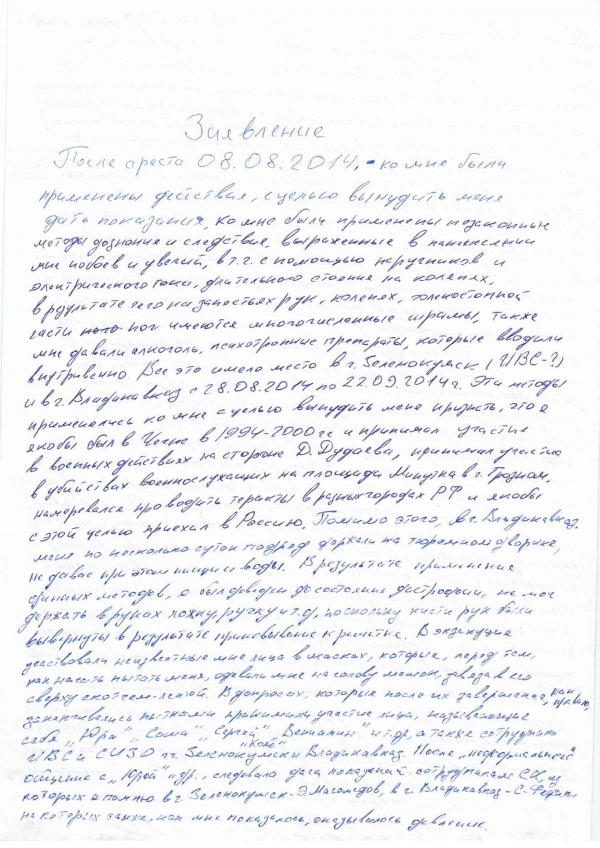 Заявление
После ареста 08.08.2014, ко мне были
применены действия, с целью вынудить меня
дать показания, ко мне были применены незаконные
методы дознания и следствия, выраженные в нанесении
мне побоев и увечий, в т.ч. с помощью наручников и
электрического тока, длительного стояния на коленях,
в результате чего на запястьях рук, коленях, голеностопной
части ног имеются многочисленные шрамы, также
мне давали алкоголь, психотропные препараты, которые вводили
внутривенно. Все это имело место в г. Зеленокумск (ИВС-?)
и в г. Владикавказ с 28.08.2014 по 22.09.2014 г. Эти методы
применялись ко мне с целью вынудить меня признать, что я
якобы был в Чечне в 1994-2000 гг и принимал участие
в военных действиях на стороне Д. Дудаева, принимал участие
в убийствах военнослужащих на площади Минутка в г. Грозном,
намеревался проводить теракты в разных городах РФ и якобы
с этой целью приехал в Россию. Помимо этого, в г. Владикавказ.
меня по несколько суток подряд держали на тюремном дворике,
не давая при этом пищи и воды. В результате применения
данных методов, я был доведен до состояния дистрофии, не мог
держать в руках ложку, ручку и т.д, поскольку кисти рук были
вывернуты в результате приковывание к решетке. В экзекуции
участвовали неизвестные мне лица в масках, которые, перед тем,
как начать пытать меня, одевали мне на голову мешок, завязав его
сверху скотчем-лентой. В допросах, которые после их завершения, как правило,
заканчивались пытками принимали участие лица, называющие
себя „Юра", „Сома", „Сергей", „Вениамин" и т.др, а также сотрудники
„Коля"
ИВС и СИЗО гг. Зеленокумск и Владикавказ. После „неформального"
общение с „Юрой" и др., следовала дача показаний сотрудникам СК, из
которых я помню в г. Зеленокумск - Э. Магомедов, в г. Владикавказ - С.
на которых также, как мне показалось, оказывалось давление.